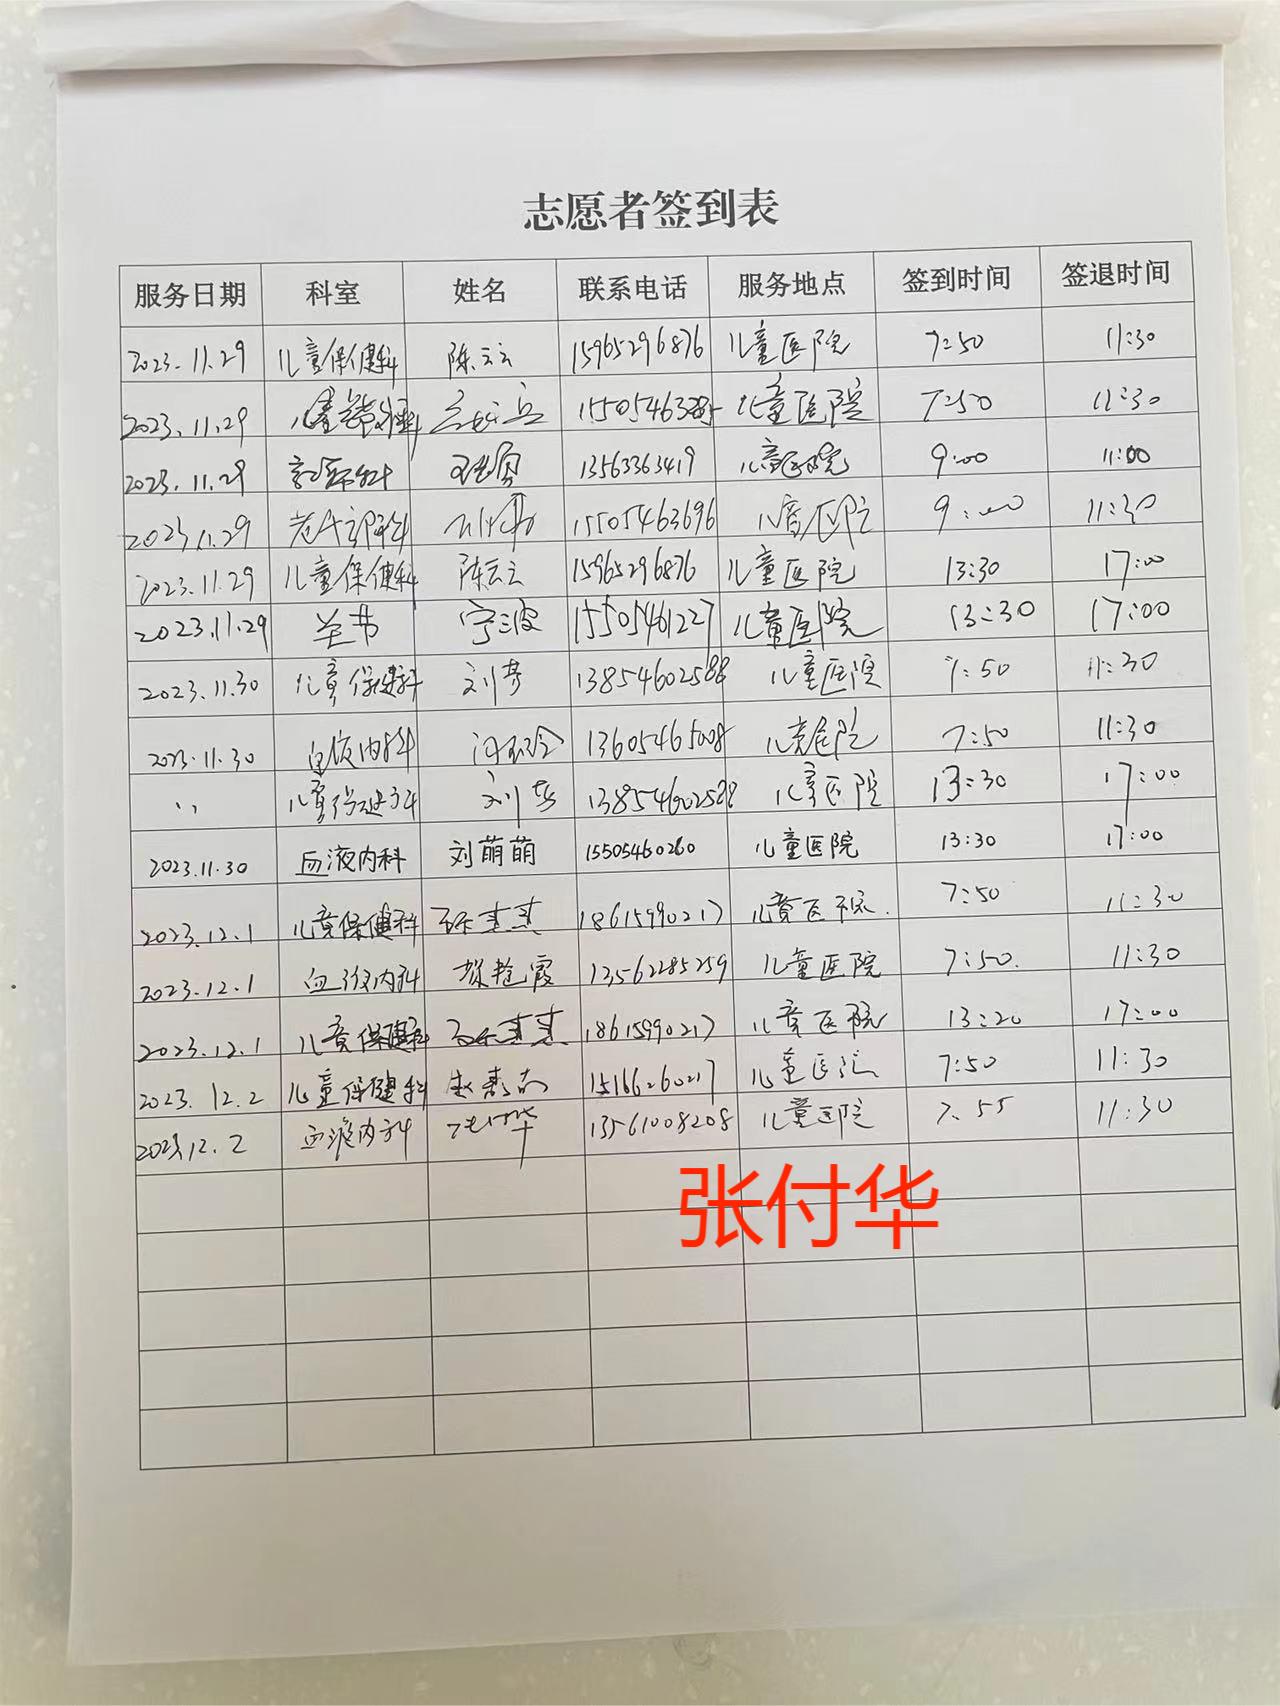 志愿者签到表
服务日期 科室 姓名 联系电话 服务地点 签到时间 签退时间
2023.11.29 儿童保健科 陈云云 15965296876 儿童医院 7:50 11:30
2023.11.29 儿童医院 7:50 11:30
2023.11.29 13563363419 儿童医院 9:00 11:00
2023.11.29 15505463696 儿童医院 9:00 11:30
2023.11.29 儿童保健科 陈云云 15965296876 儿童医院 13:30 17:00
2023.11.29 宁波 15505461227 儿童医院 13:30 17:00
2023.11.30 儿童保健科 刘梦 13854602588 儿童医院 7:50 11:30
2023.11.30 血液内科 13605465008 儿童医院 7:50 11:30
,, 儿童保健科 刘梦 13854602588 儿童医院 13:30 17:00
2023.11.30 血液内科 刘萌萌 15505460260 儿童医院 13:30 17:00
2023.12.1 儿童保健科 18615990217 儿童医院. 7:50 11:30
2023.12.1 血液内科 13562285259 儿童医院 7:50. 11:30
2023.12.1 儿童保健科 18615990217 儿童医院 13:20 17:00
2023.12.2 儿童保健科 15166260217 儿童医院 7:50 11:30
2023.12.2 血液内科 张付华 13561008208 儿童医院 7.55 11:30
张付华